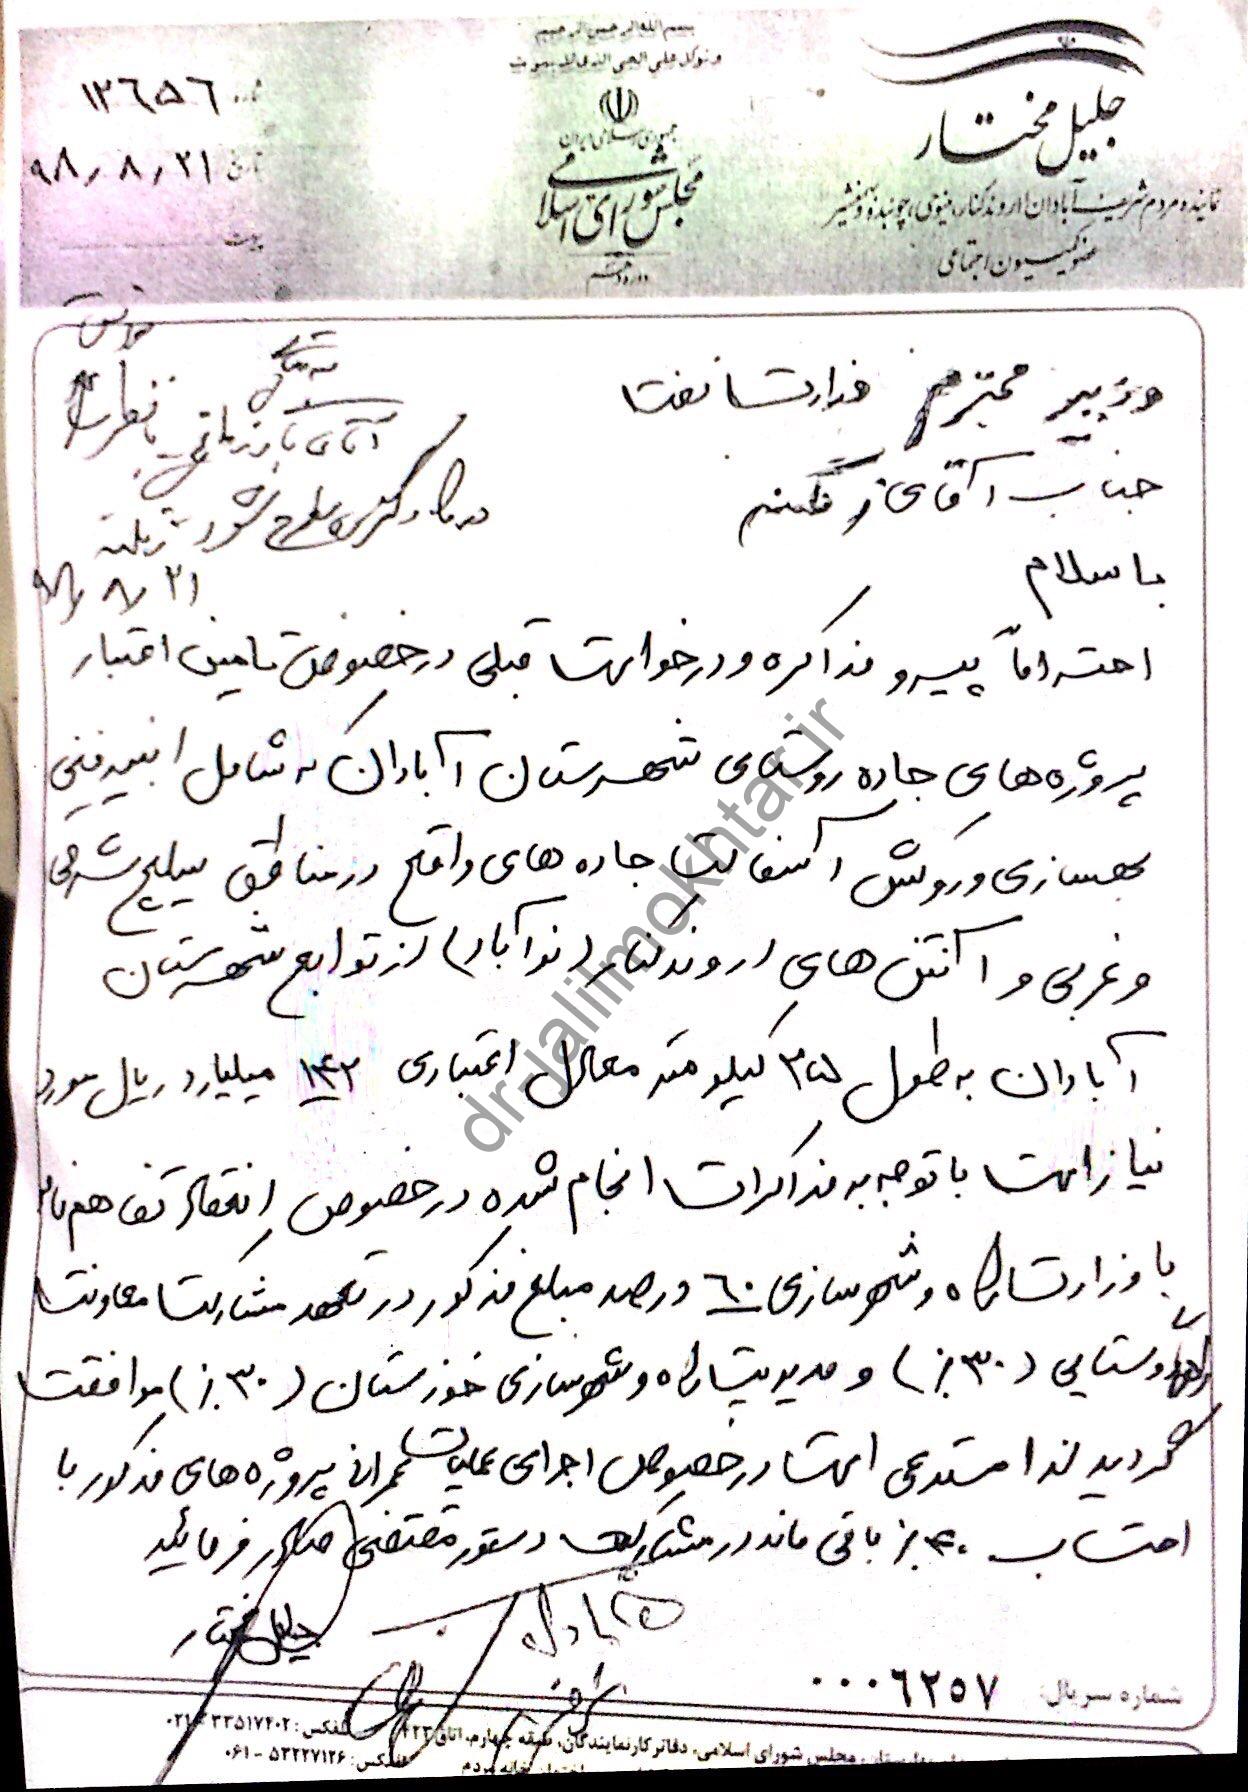 بسم الله الرحمن الرحیم
و توکل علی الحی الذی لا یموت
جمهوری اسلامی ایران
مجلس شورای اسلامی
جلیل مختار
نماینده مردم شریف آبادان، اروندکنار، مینوی، چوئبده و بهمنشیر
عضو کمیسیون اجتماعی
شماره ۱۲۶۵۶
تاریخ ۹۸/۸/۲۱
پیوست
وزیر محترم وزارت نفت
جناب آقای زنگنه
با سلام
احتراماً پیرو مذاکره و درخواست قبلی در خصوص تامین اعتبار
پروژه های جاده روستای شهرستان آبادان که شامل ابنیه فنی
بهسازی و روکش آسفالت جاده های واقع در مناطق سلیچ شرقی
و غربی و آنتن های اروندکنار (نوآباد) از توابع شهرستان
آبادان به طول ۳۵ کیلومتر معادل اعتباری ۱۴۲ میلیارد ریال مورد
نیاز است با توجه به مذاکرات انجام شده در خصوص انعقاد تفاهم نامه
با وزارت راه و شهرسازی ۶۰ درصد مبلغ مذکور در تعهد مشارکت معاونت
راه روستایی (۳۰٪) و مدیریت راه و شهرسازی خوزستان (۳۰٪) موافقت
گردید لذا مستدعی است در خصوص اجرای عملیات عمرانی پروژه های مذکور با
احتساب ۴۰٪ باقی مانده در مشارکت دستور مقتضی صادر فرمائید
جلیل مختار
آقای
در
مطرح شود
۹۸/۸/۲۱
dr-jalilmokhtar.ir
شماره سریال: ۰۰۰۶۲۵۷
مجلس شورای اسلامی، دفاتر کار نمایندگان، طبقه چهارم، اتاق ۴۲۳ تلفکس: ۳۳۵۱۷۴۰۲ - ۰۲۱
تلفکس: ۵۳۲۲۷۱۲۶ - ۰۶۱